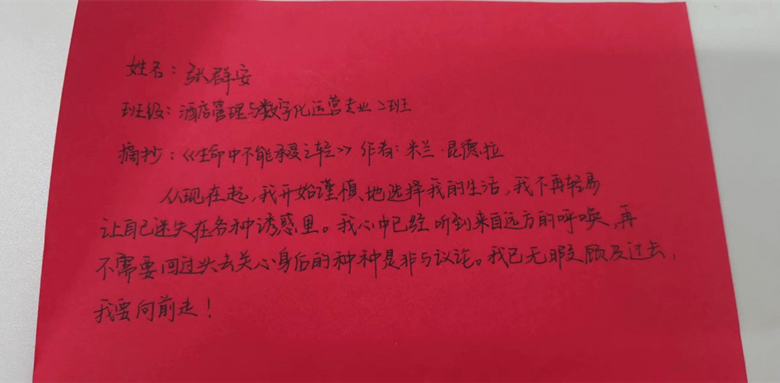 姓名：张群安
班级：酒店管理与数字化运营专业2班
摘抄：《生命中不能承受之轻》作者：米兰·昆德拉
从现在起，我开始谨慎地选择我的生活，我不再轻易
让自己迷失在各种诱惑里。我心中已经听到来自远方的呼唤，再
不需要回过头去关心身后的种种是非与议论。我已无暇顾及过去，
我要向前走！